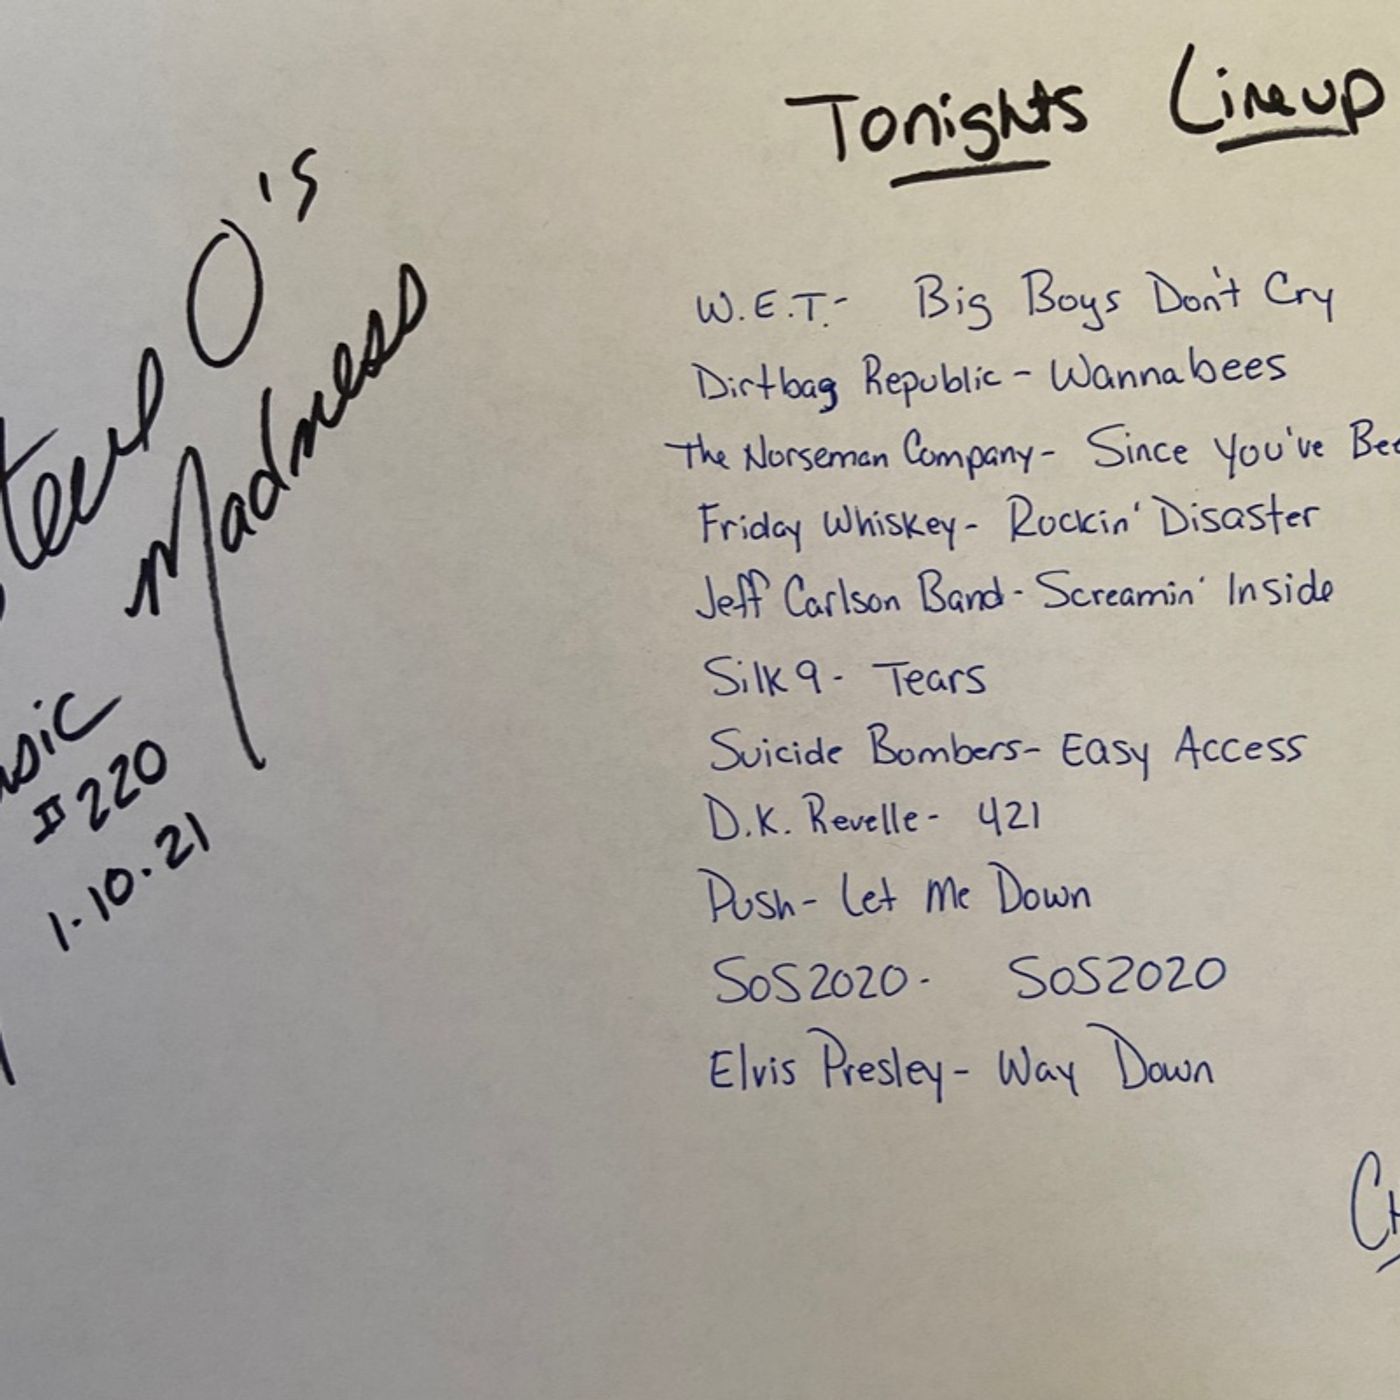 Tonights Lineup
O's
Madness
#220
1.10.21
W.E.T.- Big Boys Don't Cry
Dirtbag Republic - Wannabees
The Norseman Company - Since You've
Friday Whiskey - Rockin' Disaster
Jeff Carlson Band - Screamin' Inside
Silk 9 - Tears
Suicide Bombers - Easy Access
D.K. Revelle - 421
Push - Let Me Down
SoS2020 - SoS2020
Elvis Presley - Way Down